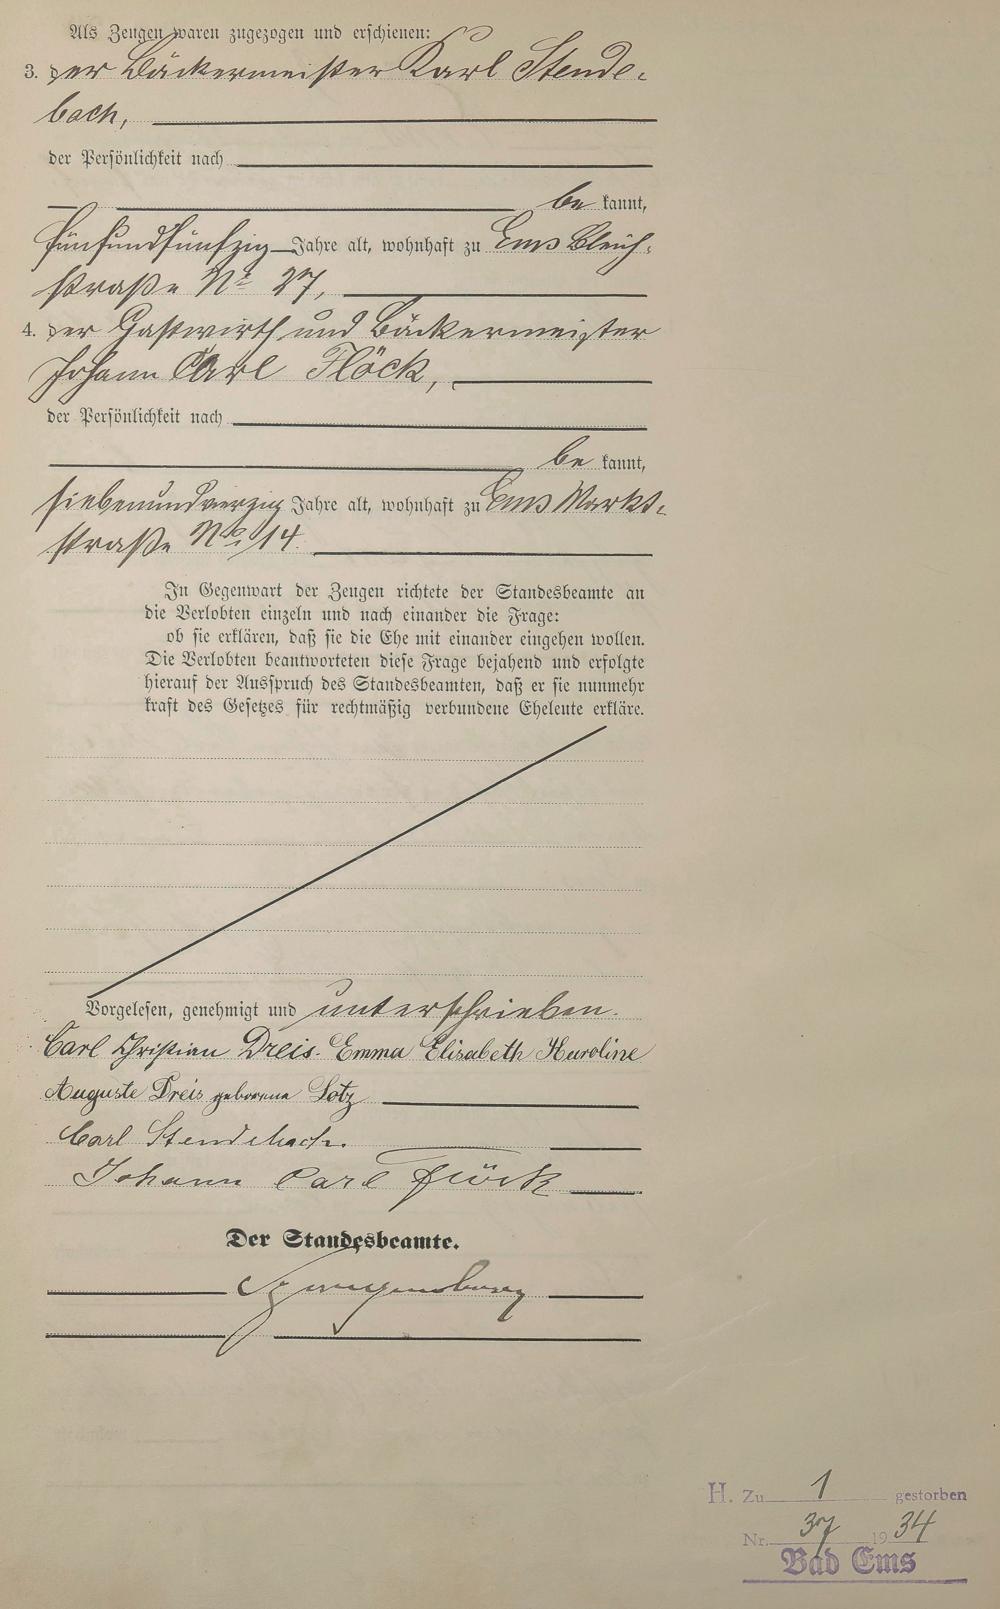 Als Zeugen waren zugezogen und erschienen:
3. der Bäckermeister Karl Stende-
bach,
der Persönlichkeit nach
be kannt,
fünfundfünfzig Jahre alt, wohnhaft zu Ems Bleich-
straße No 27,
4. der Gastwirth und Bäckermeister
Johann Carl Flöck,
der Persönlichkeit nach
be kannt,
siebenundvierzig Jahre alt, wohnhaft zu Ems Markt-
straße No 14.
In Gegenwart der Zeugen richtete der Standesbeamte an
die Verlobten einzeln und nach einander die Frage:
ob sie erklären, daß sie die Ehe mit einander eingehen wollen.
Die Verlobten beantworteten diese Frage bejahend und erfolgte
hierauf der Ausspruch des Standesbeamten, daß er sie nunmehr
kraft des Gesetzes für rechtmäßig verbundene Eheleute erkläre.
Vorgelesen, genehmigt und unterschrieben.
Carl Christian Dreis. Emma Elisabeth Karoline
Auguste Dreis geborene Lotz
Carl Stendebach.
Johann Carl Flöck
Der Standesbeamte.
H. Zu 1 gestorben
Nr. 37 1934
Bad Ems